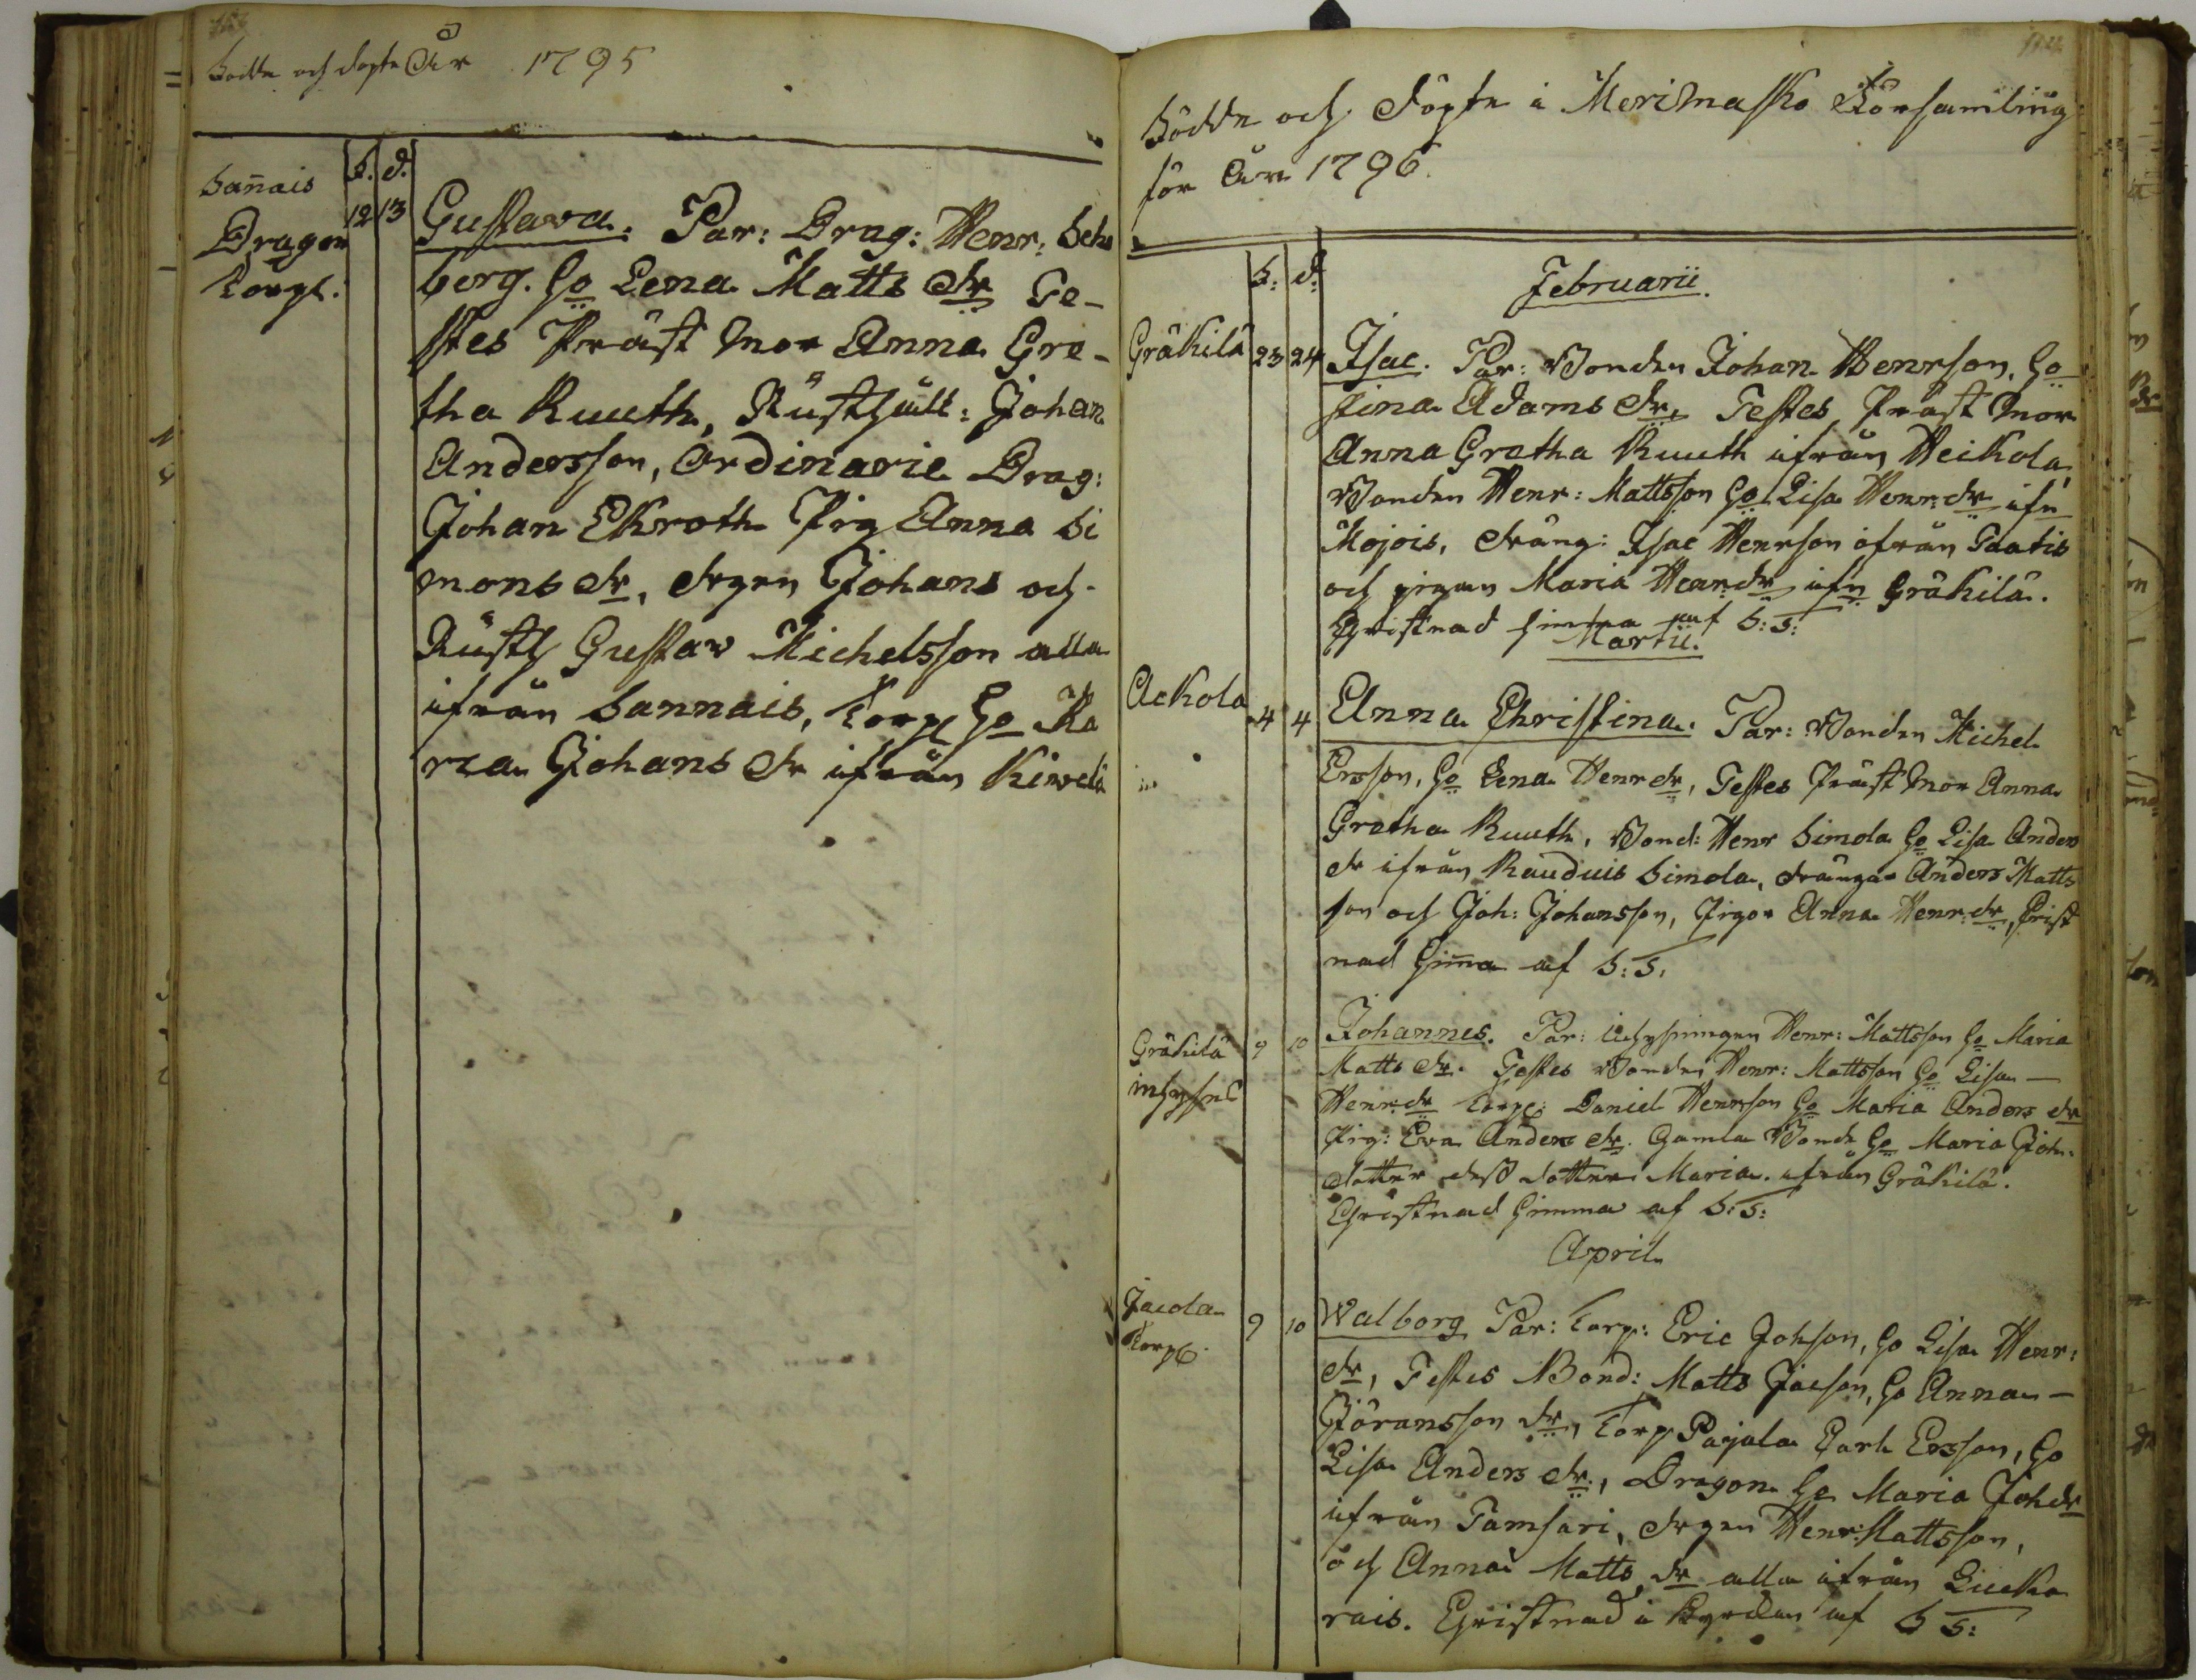 Födde och döpte År 1795
Sannais
Dragon
Torpt.
f. d.
12 13
Gustava. Par: Drag: Henr: Seke
berg. Ho Lena Matts dr Te-
stes Präst Mor Anna Gre-
tha Ruuth, Rusthåll: Johan
Andersson, Ordinarie Drag:
Johan Ekroth Pig Anna Si
mons dr, drgen Johans och
Rusth Gustav Michelsson alla
ifrån Sannais, Torp Ho Ma
ria Johans dr ifrån
Födde och Döpte i Merimasko Församling
för År 1796.
f: d:
Februarii.
Gräkilä 23 24
Isac. Par: Bonden Johan Henrson, Ho
Stina Adams dr, Testes, Präst Mor
Anna Gretha Ruuth ifrån Heikola,
Bonden Henr: Mattsson Ho Lisa Henr:dr ifn
Mojois, dräng: Isac Henrson ifrån Taatis
och pigan Maria Henr:dr ifn Gräkilä.
Christnad hemma af S:S:
Martii.
Ackola
4 4
Anna Christina. Par: Bonden Michel
Ersson, Ho Lena Henrdr, Testes Präst Mor Anna
Gretha Ruuth, Bond: Henr Simola Ho Lisa Anders
dr ifrån Rauduis Simola, drängar Anders Matts
son och Joh: Johansson, Pigor Anna Henr:dr, Christ
nad Hemma af S:S.
Gräkilä 9 10
inhyses
Johannes. Par: inhysningen Henr: Mattsson Ho Maria
Matts dr. Testes Bonden Henr: Mattsson Ho Lisa –
Henr:dr Torp: Daniel Henrson Ho Maria Anders dr
Pig: Eva Anders dr. Gamla Bond Ho Maria Joh:
dotter dess dotter Maria. ifrån Gräkilä.
Christnad Hemma af S:S:
April
Jacola 9 10
Torp
Walborg Par: Torp: Eric Johson, Ho Lisa Henr:
dr, Testes Bond: Matts Jacson, Ho Anna –
Göransson dr, Torp Pajala Carl Ersson, Ho
Lisa Anders dr, Dragon Ho Maria Joh dr
ifrån Tamsari, drgen Henr: Mattsson,
och Anna Matts dr alla ifrån Liuka
rais. Christnad i Kyrckan af S S: